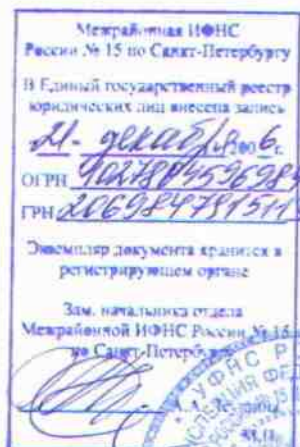 Межрайонная ИФНС
России № 15 по Санкт-Петербургу
В Единый государственный реестр
юридических лиц внесена запись
21 декабря 2006 г.
ОГРН 1027804596984
ГРН
Экземпляр документа хранится в
регистрирующем органе
Зам. начальника отдела
Межрайонной ИФНС России № 15
по Санкт-Петербургу